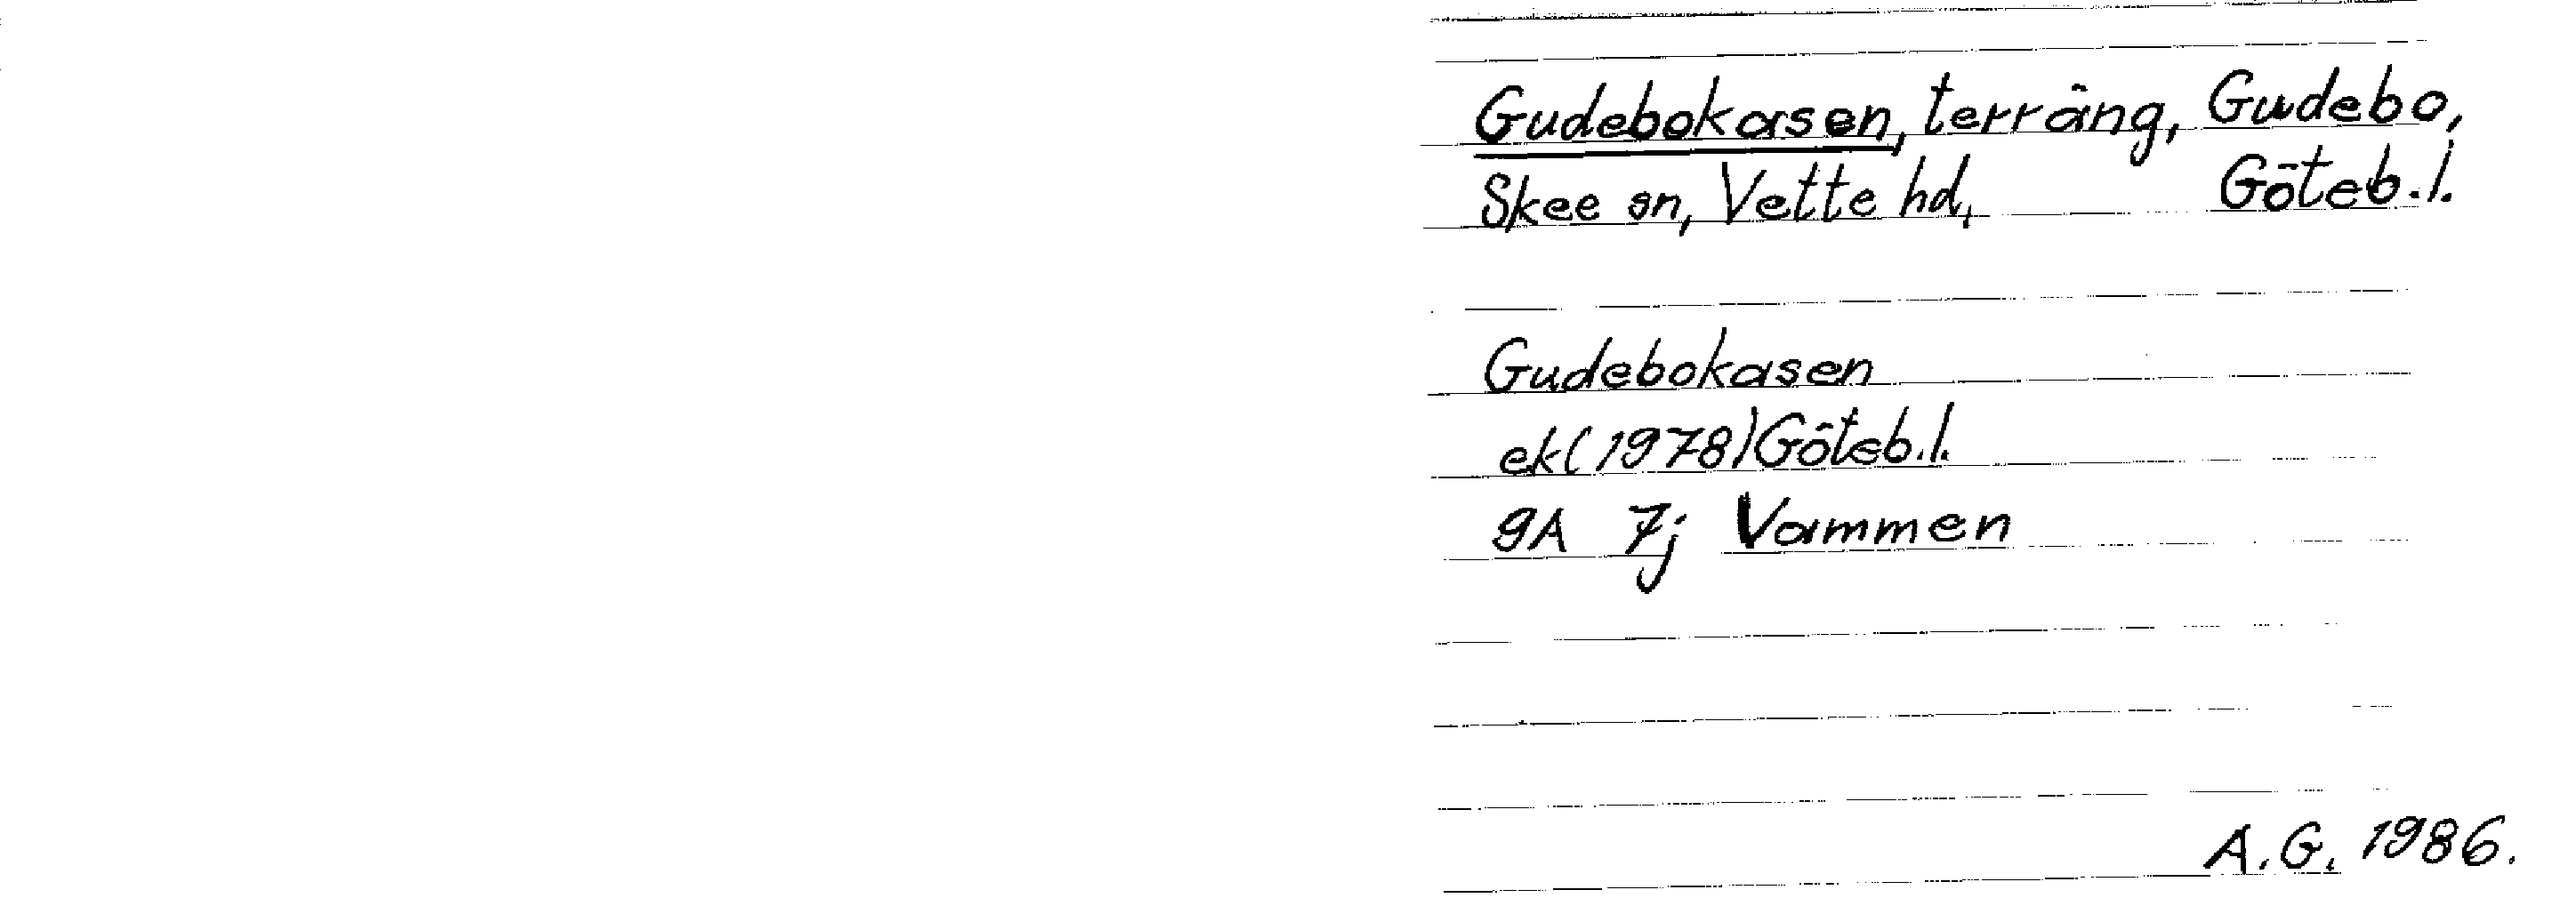 Gudebokasen, terräng, Gudebo,
Skee sn, Vette hd, Göteb.l.
Gudebokasen
ek(1978)Göteb.l.
9A 7j Vammen
A.G. 1986.